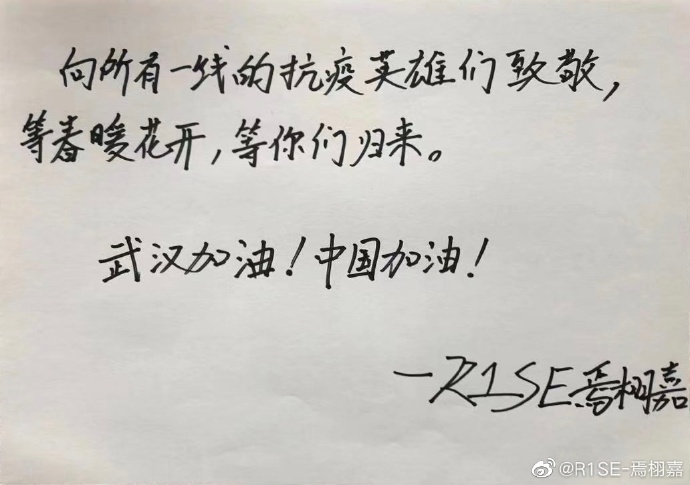 向所有一线的抗疫英雄们致敬，
等春暖花开，等你们归来。
武汉加油！中国加油！
—R1SE焉栩嘉
@R1SE-焉栩嘉